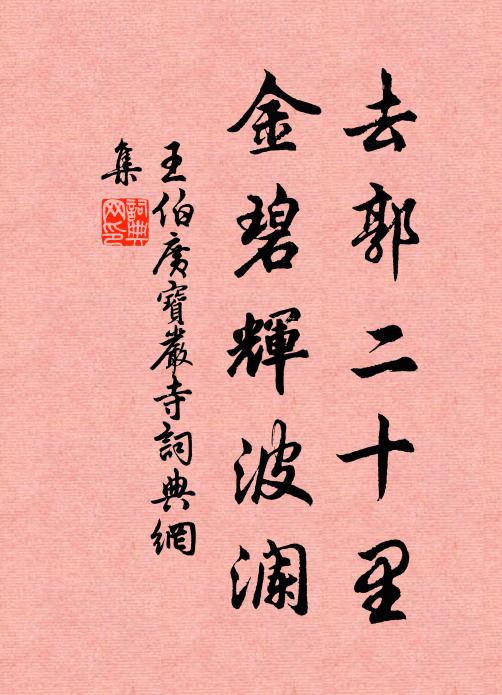 去郭二十里
金碧輝波澜
王伯廣寶巖寺詞典網
集
詞典網印